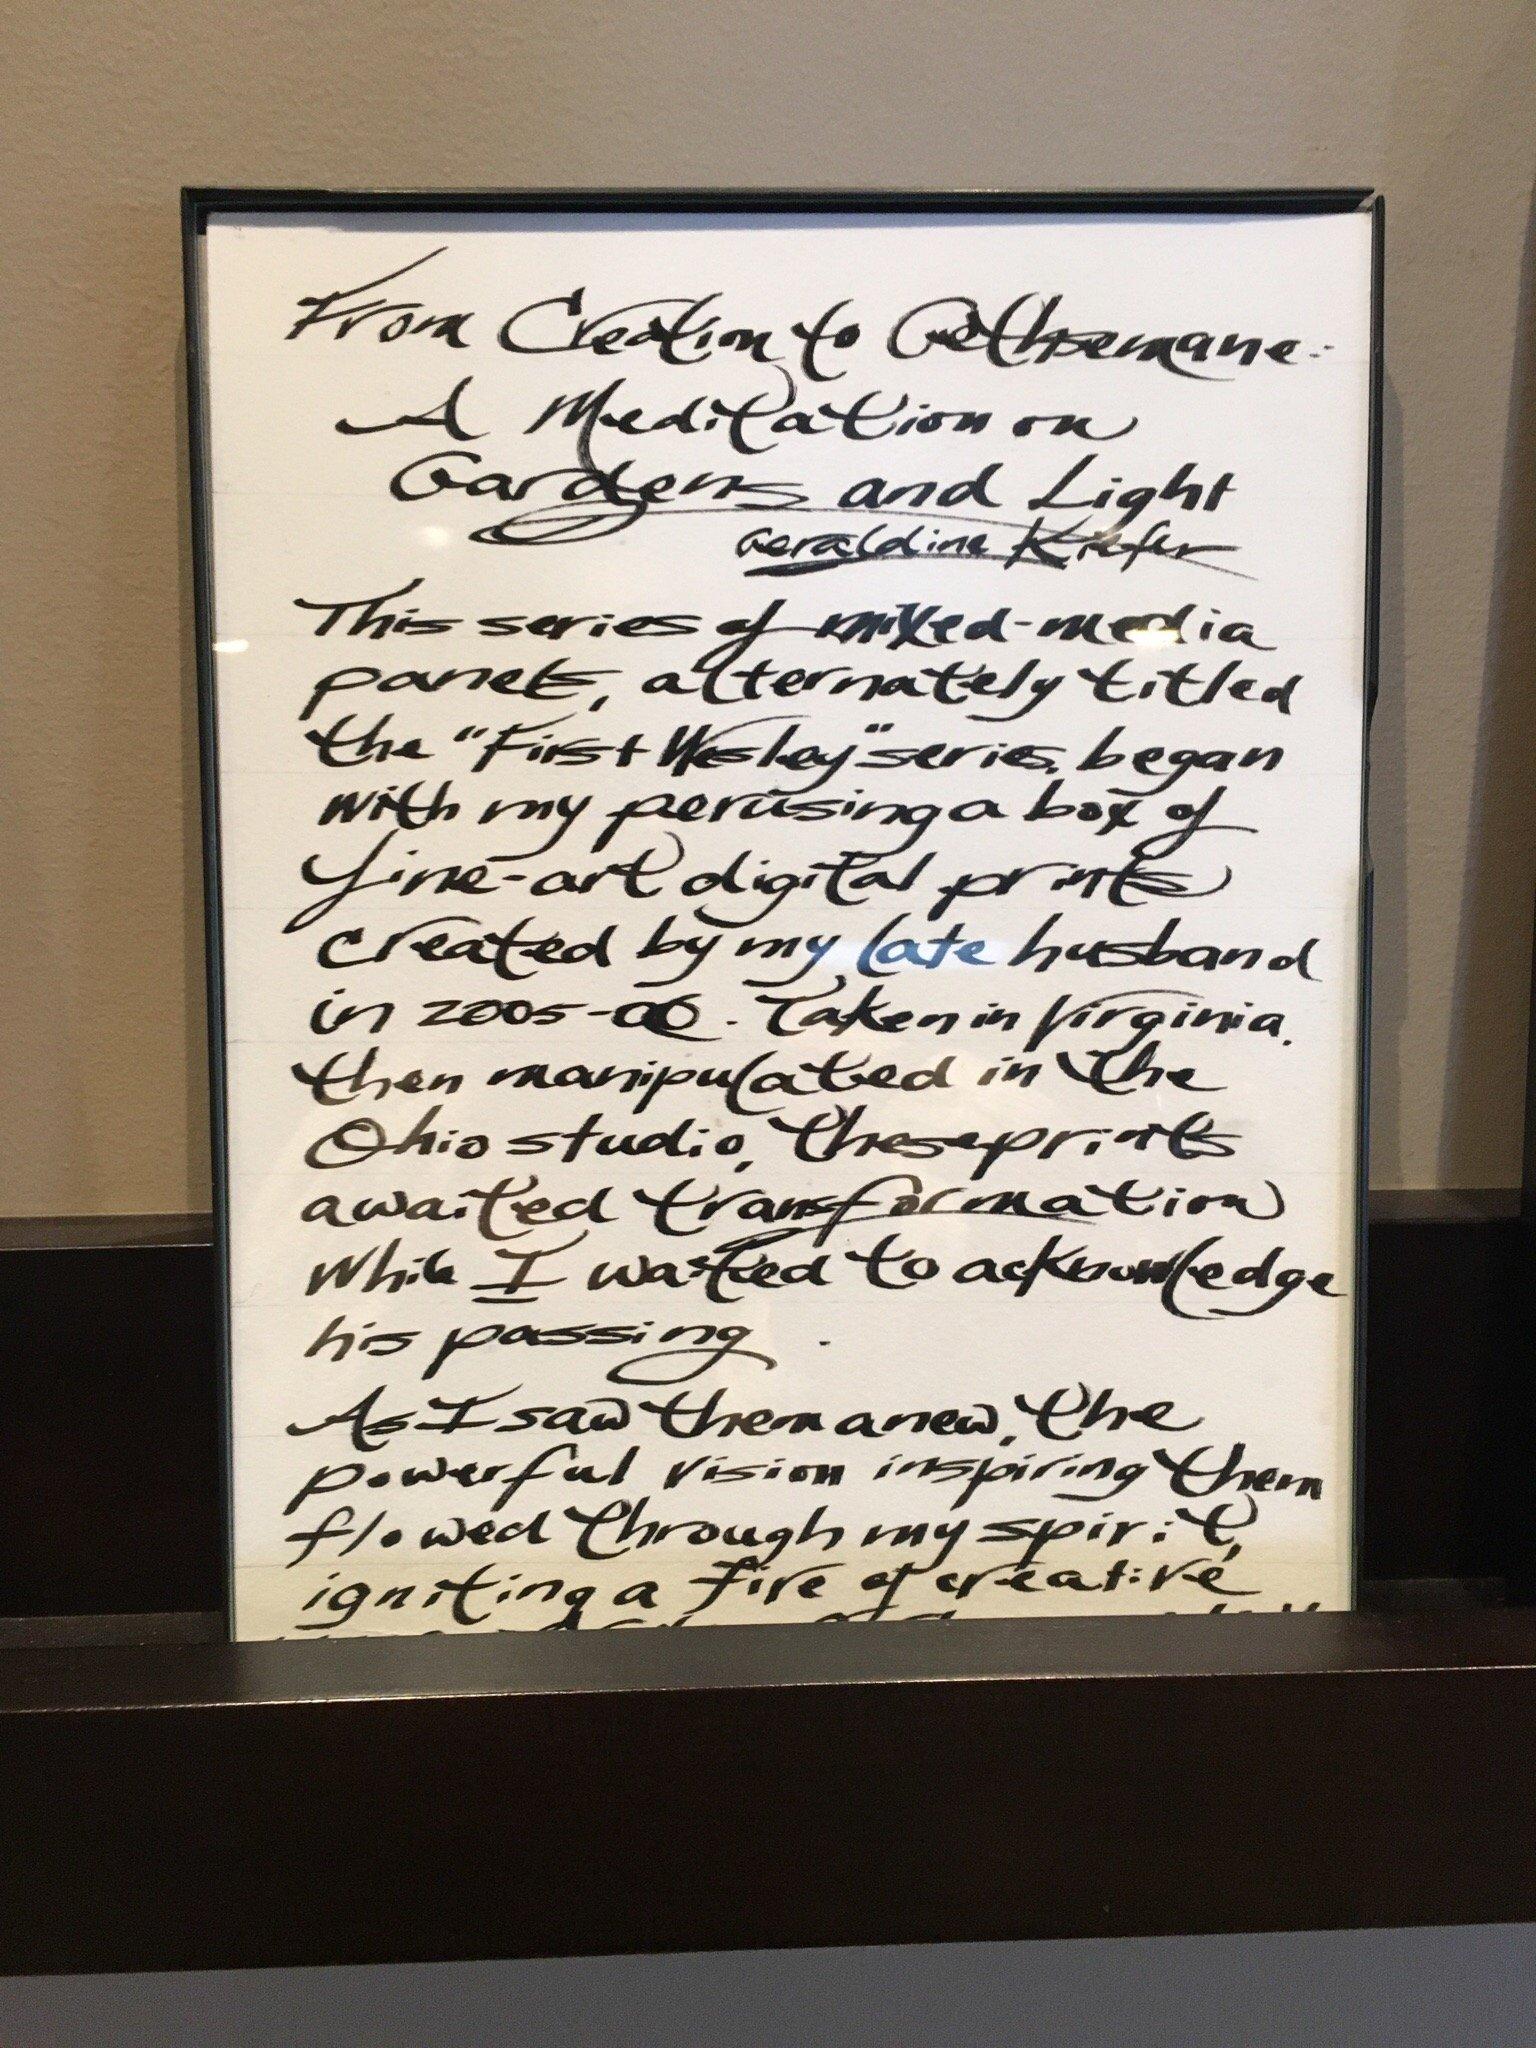 From Creation to Gethsemane:
A Meditation on
Gardens and Light
Geraldine Kiefer
This series of mixed-media
panels, alternately titled
the "First Wesley" series, began
with my perusing a box of
fine-art digital prints
created by my late husband
in 2005-06. Taken in Virginia,
then manipulated in the
Ohio studio, these prints
awaited transformation
while I waited to acknowledge
his passing.
As I saw them anew, the
powerful vision inspiring them
flowed through my spirit,
igniting a fire of creative